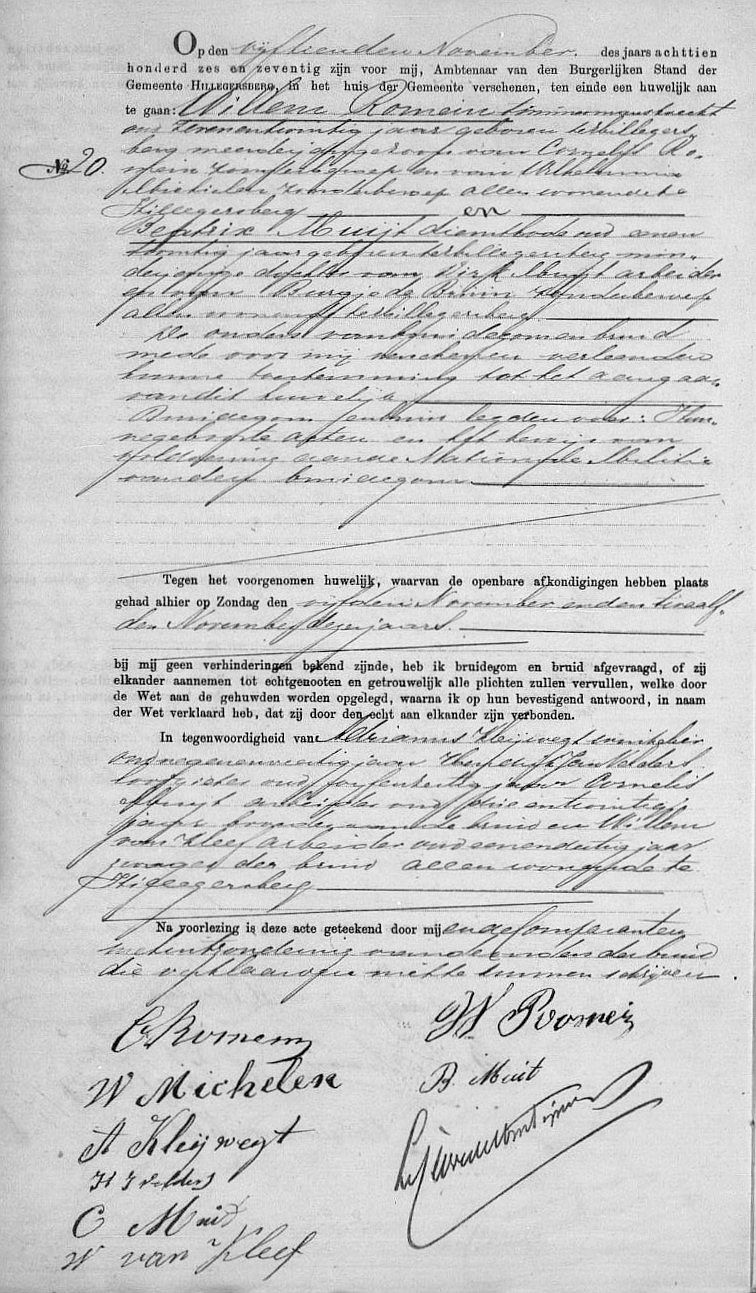 Op den vijftienden November des jaars achttien
honderd zes en zeventig zijn voor mij, Ambtenaar van den Burgerlijken Stand der
Gemeente HILLEGERSBERG, in het huis der Gemeente verschenen, ten einde een huwelijk aan
te gaan: Willem Romein timmermansknecht
oud zevenentwintig jaar geboren te Hillegers,
berg meerderjarige zoon van Cornelis Ro,
No 20.
mein zonder beroep en van Wilhelmina
Michielen zonder beroep allen wonende te
Hillegersberg en
Beatrix Muijt dienstbode oud eenen
twintig jaar geboren te Hillegersberg min,
derjarige dochter van Dirk Muijt arbeider
en van Burgje de Bruin zonder beroep
allen wonende te Hillegersberg
De ouders van bruidegom en bruid
mede voor mij verschenen verleenden
hunne toestemming tot het aangaan
van dit huwelijk
Bruidegom en bruid legden over: Hun,
ne geboorte acten en het bewijs van
voldoening aan de Nationale Militie
van den bruidegom
Tegen het voorgenomen huwelijk, waarvan de openbare afkondigingen hebben plaats
gehad alhier op Zondag den vijfden November en den twaalf
den November dezes jaars.
bij mij geen verhinderingen bekend zijnde, heb ik bruidegom en bruid afgevraagd, of zij
elkander aannemen tot echtgenooten en getrouwelijk alle plichten zullen vervullen, welke door
de Wet aan de gehuwden worden opgelegd, waarna ik op hun bevestigend antwoord, in naam
der Wet verklaard heb, dat zij door den echt aan elkander zijn verbonden.
In tegenwoordigheid van Adrianus Kleijwegt
oud negenenveertig jaar Velders
oud jaar Cornelis
Muijt arbeider oud drie entwintig
jaar broeder van de bruid en Willem
van Kleef arbeider oud eenendertig jaar
zwager der bruid allen wonende te
Hillegersberg
Na voorlezing is deze acte geteekend door mij en de Comparanten
met uitzondering van de ouders der bruid
die verklaarden niet te kunnen schrijven
C Romein
W Romein
W Michelen
B. Muit
A Kleijwegt
H Velders
C Muit
W van Kleef